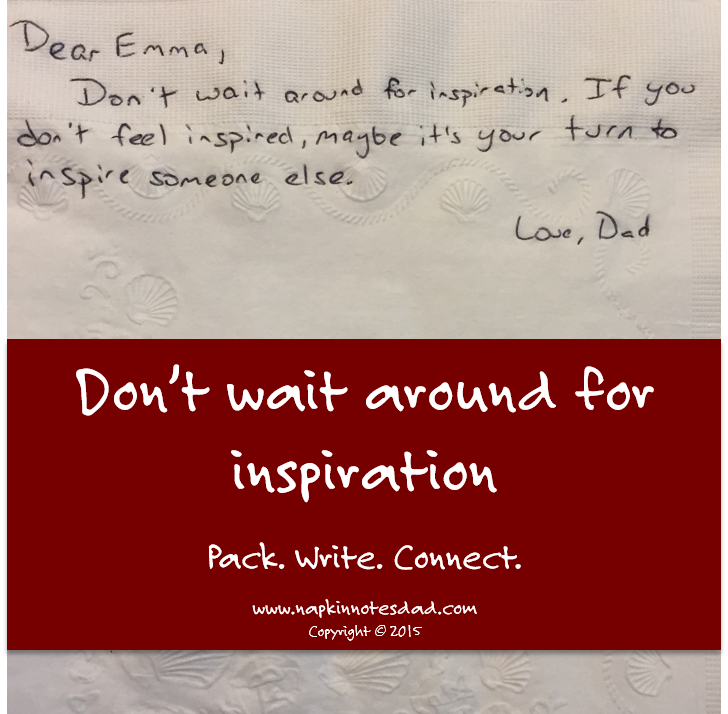 Dear Emma,
Don't wait around for inspiration. If you
don't feel inspired, maybe it's your turn to
inspire someone else.
Love, Dad
Don't wait around for
inspiration
Pack. Write. Connect.
www.napkinnotesdad.com
Copyright © 2015